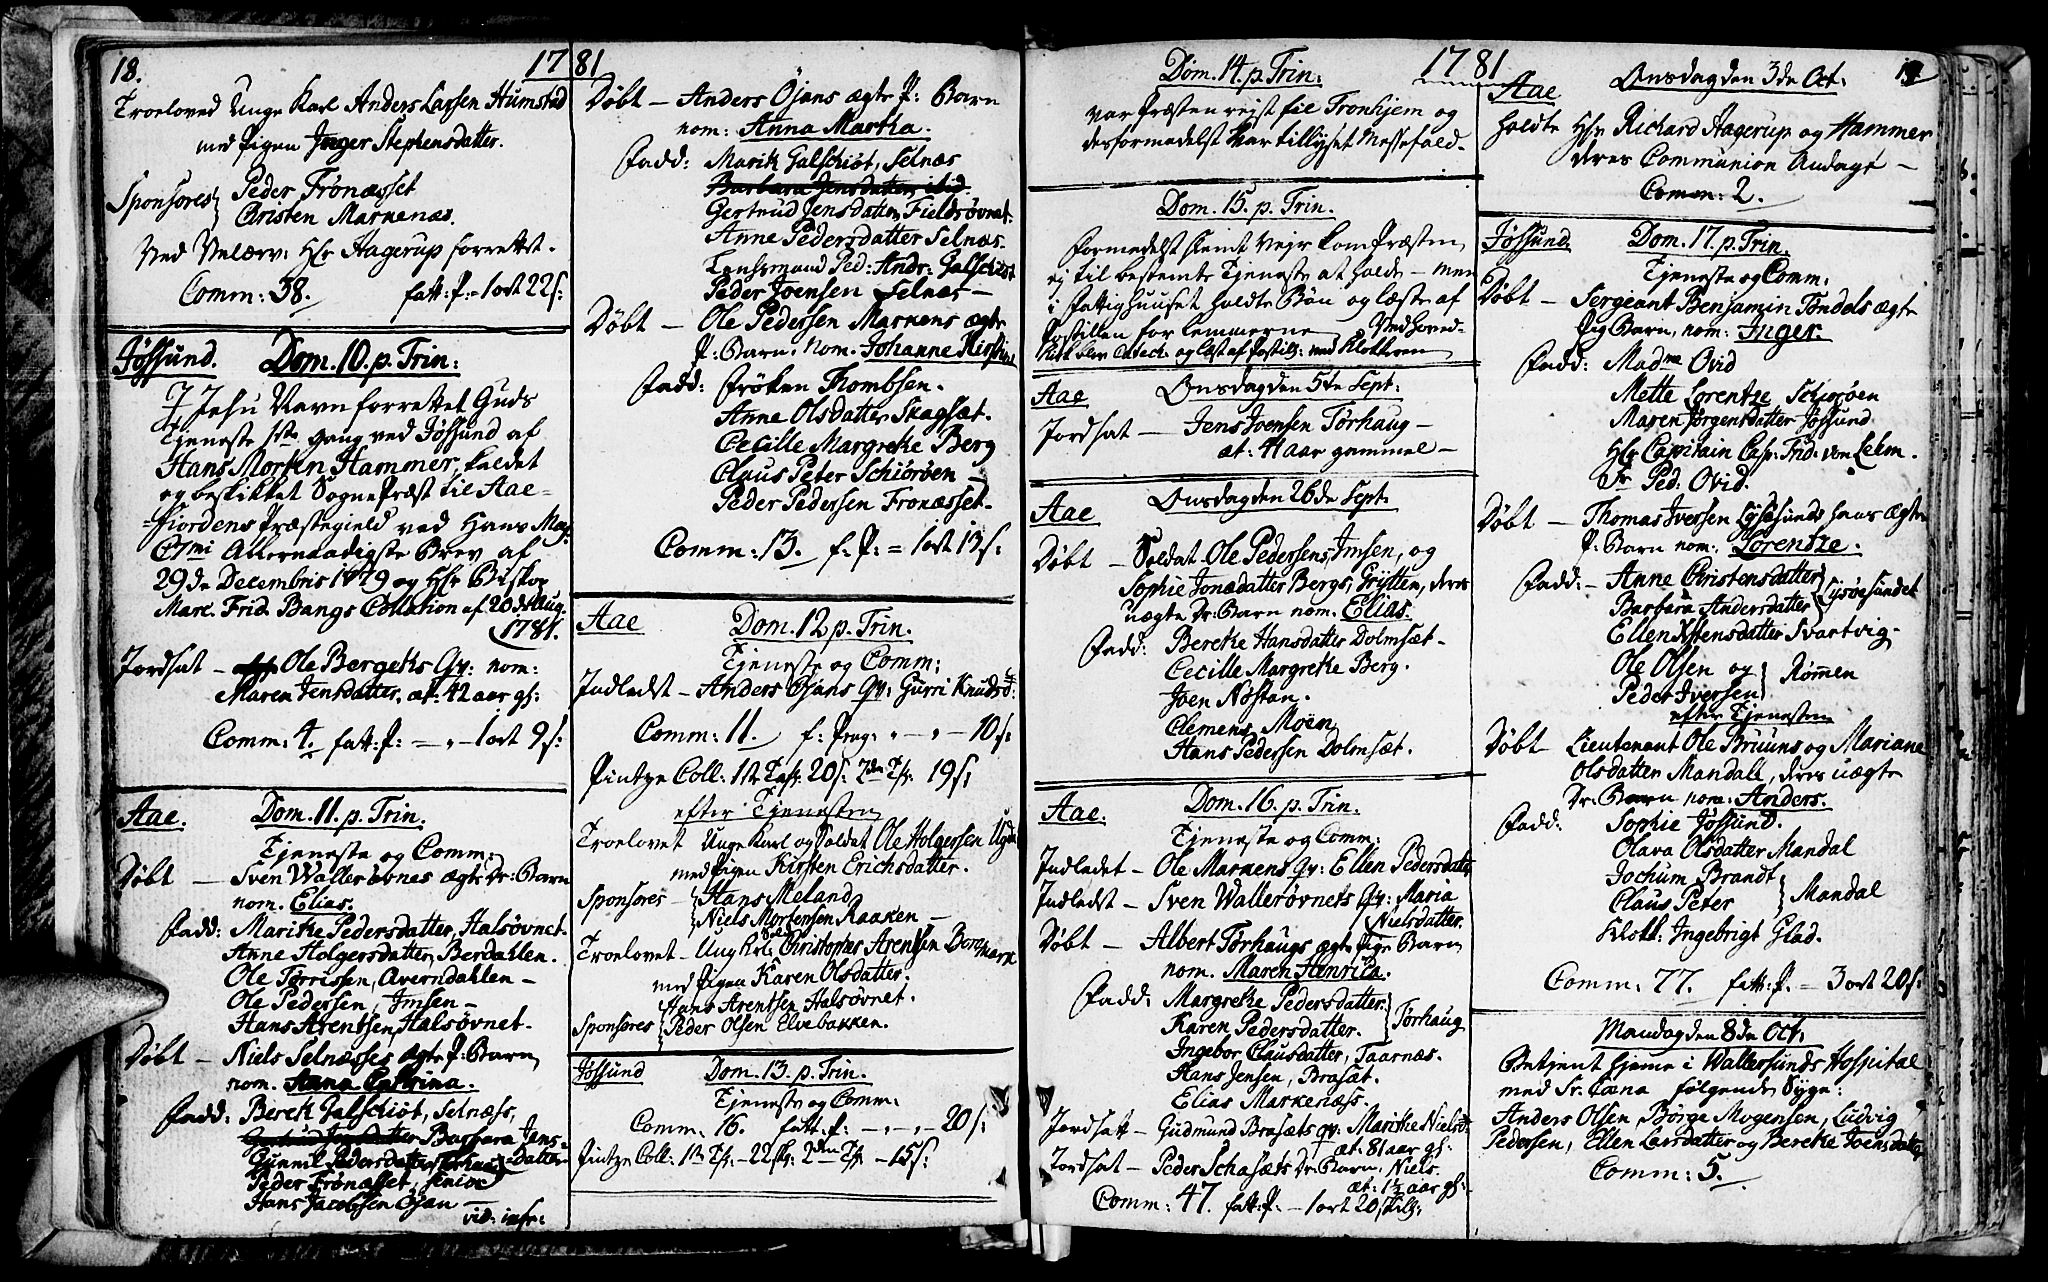 18.
1781
Troeloved Unge Karl Anders Larsen Humstad
med Pigen Inger Stephensdatter.
Sponsores Peder Frönæsset
Christen Markenæs.
Ved Valærv: Hr Hagerup forrettet.
Comm: 38. fatt: P: 1 ort 22 s:
Jössund. Dom. 10. p. Trin:
I Jesu Navn forrettet Guds
Tjeneste 1ste gang ved Jössund af
Hans Morten Hammer, kaldet
og beskikket SognePræst til Aae-
fjordens Præstegield ved Hans May:
C7mi Allernaadigste Brev af
29de Decembris 1779 og Hr Biskop
Marc. Frid. Bangs Collation af 20de Aug.
1781.
Jordsat - Ole Bergets Qv: nom:
Maren Jensdatter, æt: 42 aar gl:
Comm: 4. fatt: P: - „ - 1 ort 9 s:
Aae. Dom. 11. p. Trin.
Tjeneste og Comm:
Döbt - Sven Wallerövnes ægte Dr: Barn
nom. Elias.
Fadd: Marithe Pedersdatter, Halsövnet.
Anne Holgersdatter, Berdahlen.
Ole Törrissen, Averndahlen -
Ole Pedersen, Imsen -
Hans Arentsen, Halsövnet.
Döbt - Niels Selnæsses ægte P: Barn
nom. Anna Cathrina.
Fadd: Beret Galschiöt, Selnæss,
Gertrud Jensdatter Barbara Jens-
Gunnil Pedersdatter -datter
Peder Frönæsset, senior
Hans Jacobsen Öjan -
vid: infr:
Döbt - Anders Öjans ægte P: Barn
nom: Anna Martha.
Fadd: Marit Galschiöt, Selnæs
Barbara Jensdatter, ibid.
Gertrud Jensdatter, Fieldsövnet.
Anne Pedersdatter Selnæs.
Lensmand Ped: Andr: Galschiöt
Peder Joensen Selnæs -
Döbt - Ole Pedersen Markens ægte
P: Barn. nom. Johanne Kirstine
Fadd: Fröken Thombsen.
Anne Olsdatter Skagsæt.
Cecille Margrethe Berg
Claus Peter Schiöröen -
Peder Pedersen Fronæsset.
Comm: 13. f: P: = 1 ort 13 s:
Aae Dom. 12 p. Trin.
Tjeneste og Comm:
Indledet - Anders Öjans Qv: Gurri Knudsd:
Comm: 11. f: Peng: „ - „ - 10 s:
Pintze Coll: 1ste Tafl: 20 s: 2den Tfl: 19 s:
efter Tjenesten
Troelovet Unge Karl og Soldat Ole Holgersen
med Pigen Kirsten Erichsdatter.
Sponsores - Hans Meland
Niels Mortensen Raaken -
Troelovet - Ung K: Sold: Christopher Arentsen Borgmark
med Pigen Karen Olsdatter.
Hans Arentsen Halsövnet.
Sponsores Peder Olsen Elvebakken.
Jössund Dom. 13. p. Trin.
Tjeneste og Comm:
Comm: 16. fatt: P: - „ - „ - 20 s:
Pintze Coll: 1ste Tfl: - 22 sk: 2den Tfl - 15 s:
Dom. 14. p. Trin:
1781
var Præsten rejst til Tronhjem og
desformedelst var tillyset Messefald.
Dom. 15. p. Trin.
Formedelst slemt Vejr kom Præsten
ej til bestemte Tjeneste at holde - men
i Fattighuuset holdte Bön og læste af
Postillen for Lemmerne Ved Hoved-
Kirk blev Catech: og læst af Postill: med Klokkeren
Aae Onsdag den 5te Sept:
Jordsat - Jens Joensen Törhaug -
æt: 4 aar gammel -
Aae Onsdag den 26de Sept.
Döbt - Soldat Ole Pedersens, Imsen, og
Sophie Jonædatter Bergs, Grytten, deres
uægte Dr: Barn nom. Elias.
Fadd: Berethe Hansdatter Dolmsæt -
Cecille Margrethe Berg.
Joen Nöstan.
Clemens Moen
Hans Pedersen Dolmsæt.
Aae. Dom. 16. p. Trin.
Tjeneste og Comm:
Indledet - Ole Markens Qv: Ellen Pedersdatter
Indledet - Sven Wallerövnets Qv: Maria
Nielsdatter.
Döbt - Albert Törhaugs ægte Pige Barn
nom. Maren Henrica.
Fadd: Margrethe Pedersdatter
Karen Pedersdatter. Törhaug
Ingebor Clausdatter, Taarnæs.
Hans Jensen, Brasæt.
Elias Markenæss.
Jordsatt - Gudmund Brasæts qv: Marithe Nielsd:
æt: 81 aar gl:
Jordsat - Peder Schasæts Dr: Barn: Niels.
æt: 1½ aar gl:
Comm: 47. fatt: P: - 1 ort 20 skill:
Onsdag den 3de Oct:
Aae
holdte Hr Richard Hagerup og Hammer
deres Communion Andagt -
Comm: 2.
Jössund Dom. 17. p. Trin.
Tjeneste og Comm:
Döbt - Sergeant Benjamin Tondels ægte
Pig Barn, nom: Inger.
Fadd: Madme Ovid
Mette Lorentze Schiöröen
Maren Jörgensdatter Jössund
Hr Capitain Casp: Frid: von Lelm.
Sr Ped. Ovid.
Döbt - Thomas Iversen Lysösunds hans ægte
P: Barn nom: Lorentze.
Fadd: - Anne Christensdatter
Barbara Andersdatter Lysöesundet
Ellen Stensdatter Svartvig.
Ole Olsen og
Peder Iversen Römen
efter Tjenesten
Döbt Lieutenant Ole Bruuns og Mariane
Olsdatter Mandall, deres uægte
Dr: Barn nom: Anders.
Fadd: Sophie Jössund.
Olava Olsdatter Mandal
Jochum Brandt
Claus Peter Mandal
Klokk: Ingebrigt Glad.
Comm: 77. fatt: P. - 3 ort 20 s:
Mandag den 8de Oct:
Betjent hjeme i Wallersunds Hospital
med Sr. Cæna følgende Syge:
Anders Olsen, Börge Mogensen, Ludvig
Pedersen, Ellen Larsdatter og Berethe Joensdatter
Comm: 5.